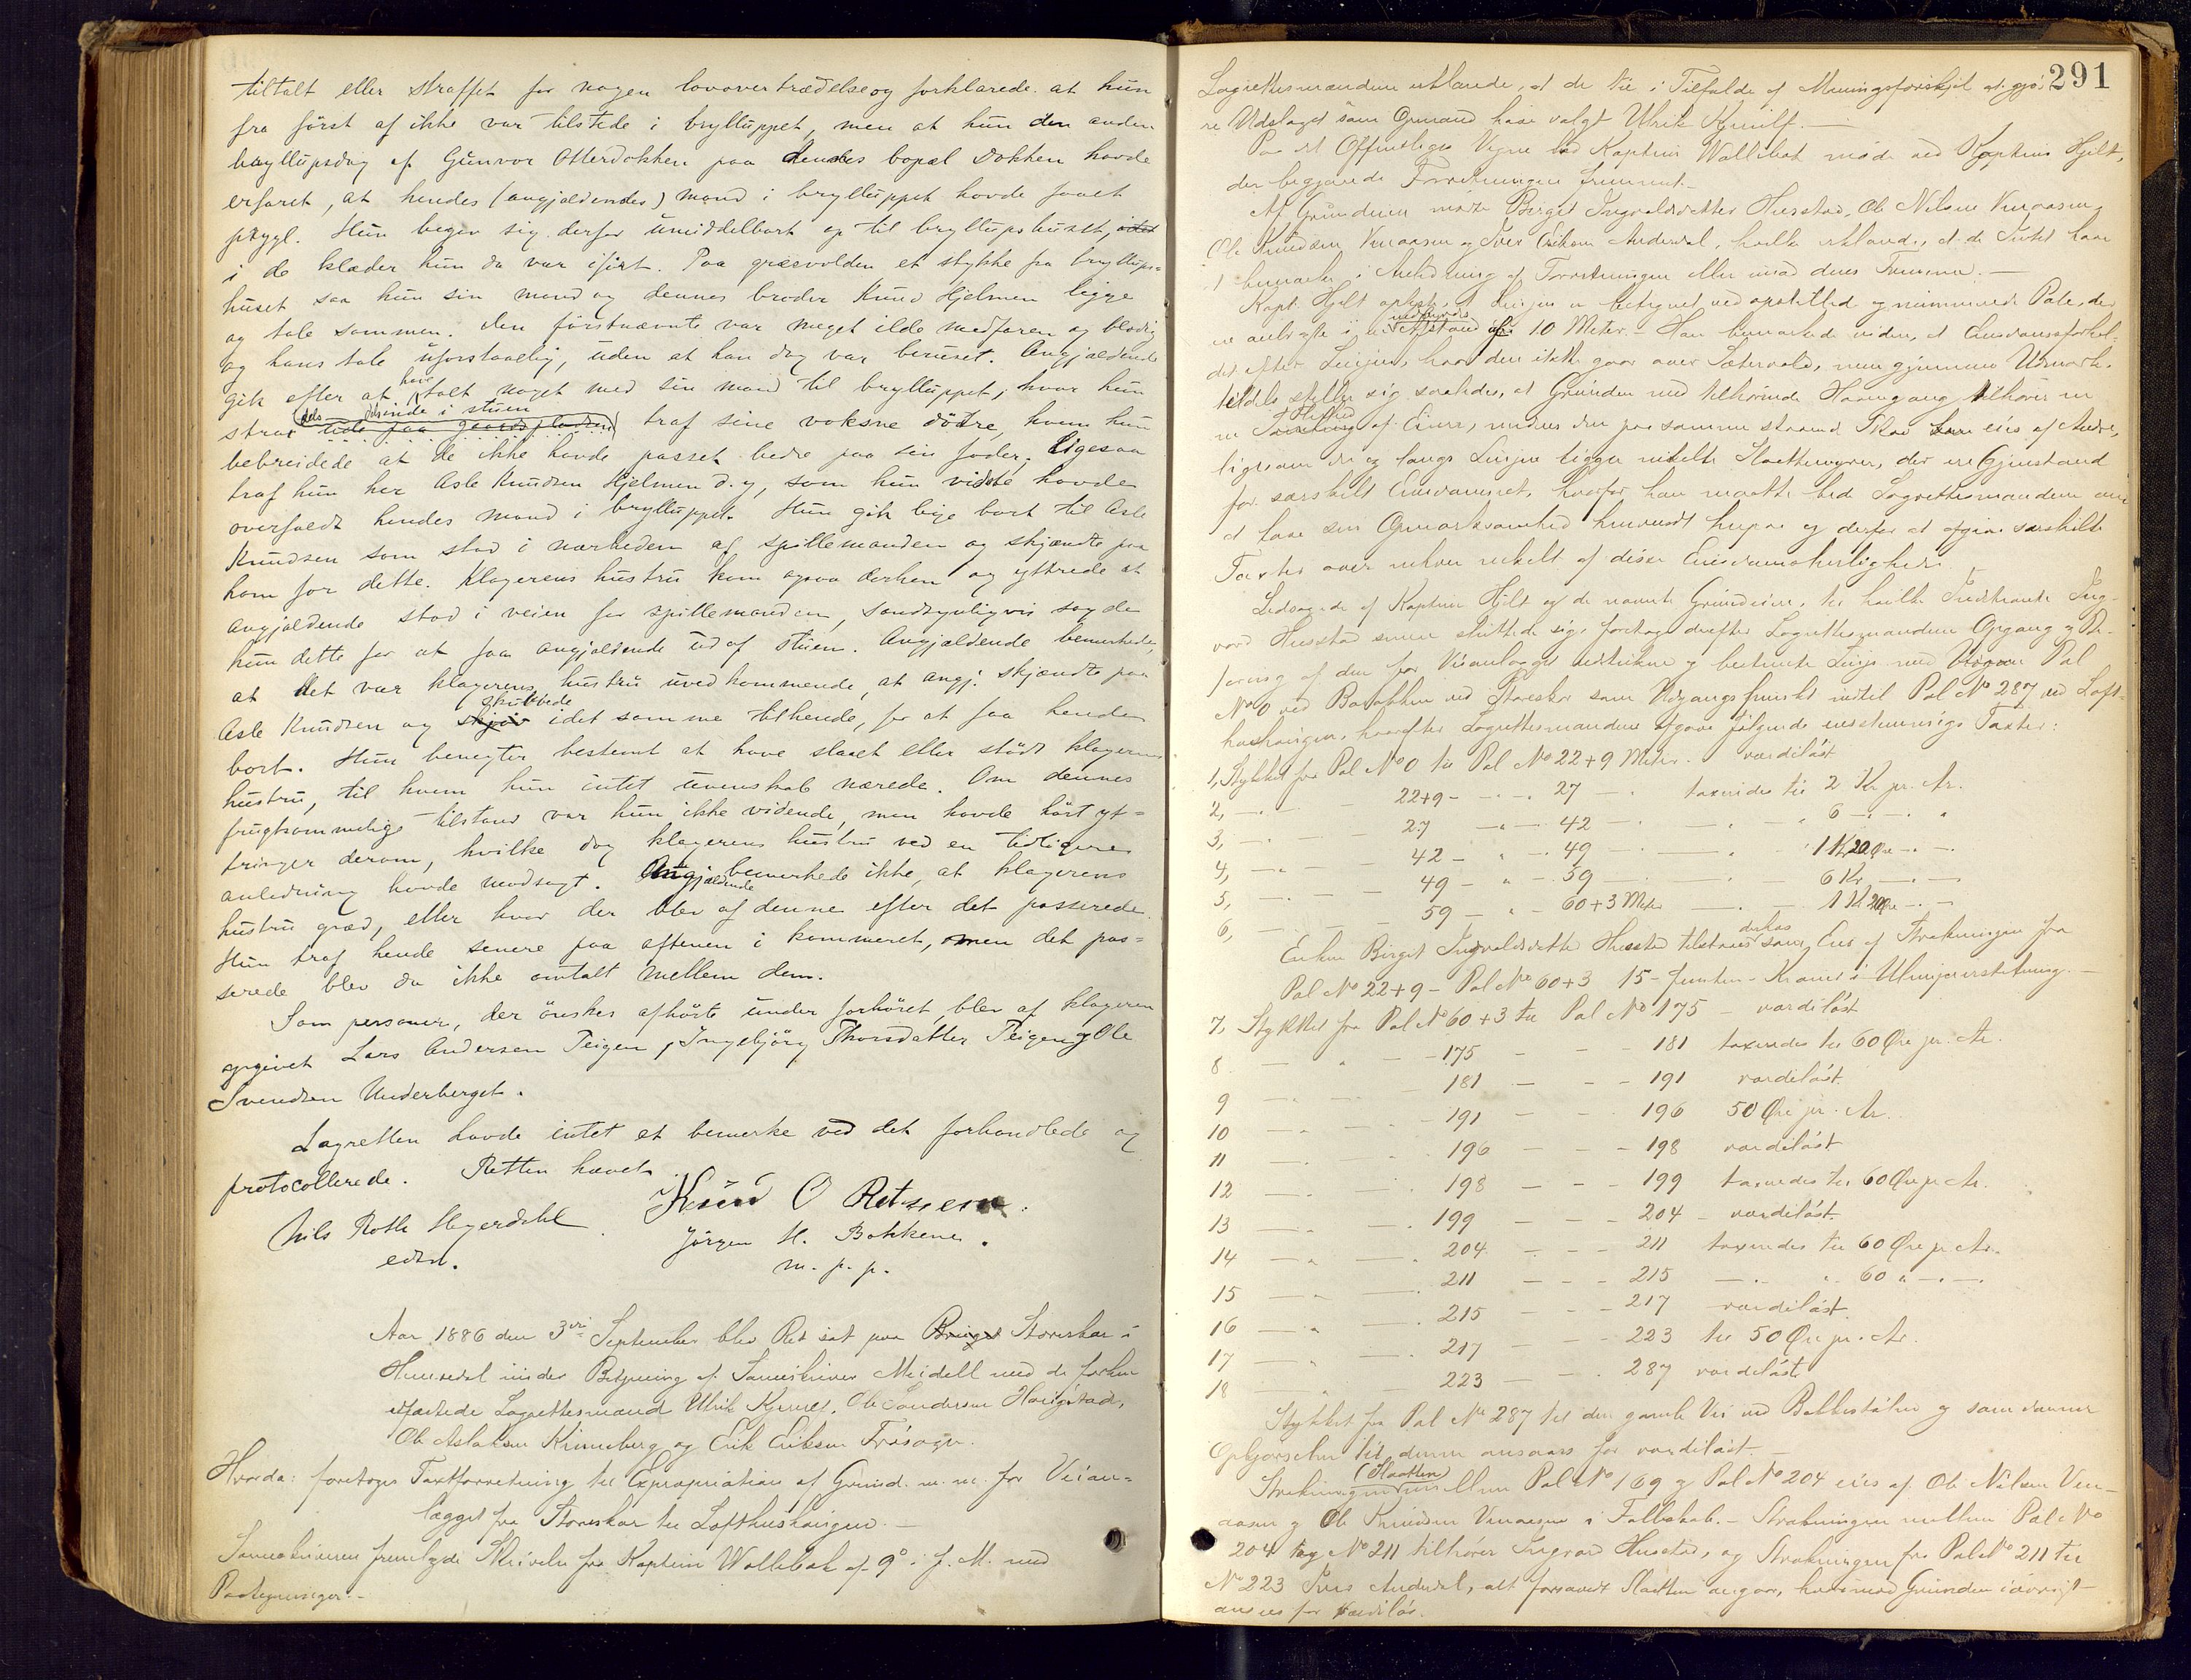 tiltalt eller straffet for nogen lovovertrædelse og forklarede at hun
fra först af ikke var tilstede i bryllüppet, men at hun den anden
bryllüpsdag af Günvor Otterdokken paa dendes bopæl Dokken havde
erfaret, at hendes (angjældendes) mand i bryllüppet havde faaet
prygl. Hun begav sig derfor ümiddelbart op til bryllüpshuset,
i de klæder hun da var iført. Paa græsvolden et stykke fra bryllüps-
huset saa hun sin mand og dennes broder Knud Hjelmen ligge
og tale sammen. Den førstnævnte var meget ilde medfaren og blodig
og hans tale uforstaaelig, uden at han dog var beruset. Angjældende
gik efter at have talt noget med sin mand til bryllüppet, hvor hun
strax dels inde i stuen ude paa gaardspladsen traf sine voksne døtre, hvem hun
bebreidede at de ikke havde passet bedre paa sin fader. Ligesaa
traf hun her Asle Knudsen Hjelmen d. y, som hun vidste havde
overfaldt hendes mand i bryllüppet. Hun gik lige bort til Asle
Knudsen som stod i nærheden af spillemanden og skjændte paa
ham for dette. Klagerens hustru kom ogsaa derhen og yttrede at
angjældende stod i veien for spillemanden, sandsynligvis sagde
hun dette for at faa angjældende ud af stuen. Angjældende bemerkede,
at det var klagerens hustru uvedkommende, at angj. skjændte paa
Asle Knudsen og skjøv skubbede idet samme til hende, for at faa hende
bort. Hun benegter bestemt at have slaaet eller stødt klagerens
hustru, til hvem hun intet uvenskab nærede. Om dennes
frugtsommelige tilstand var hun ikke vidende, men havde hørt yt-
tringer derom, hvilke dog klagerens hustru ved en tidligere
anledning havde modsagt. Angjældende bemerkede ikke, at klagerens
hustru græd, eller hvor der blev af denne efter det passerede.
Hun traf hende senere paa aftenen i kammeret, men det pas-
serede blev da ikke omtalt mellem dem.
Som personer, der ønskes afhørte under forhøret, blev af klageren
opgivet Lars Andersen Teigen, Ingebjörg Thorsdatter Teigen og Ole
Svendsen Underberget.
Lagretten havde intet at bemerke ved det forhandlede og
protocollerede. Retten hævet
Knud O
Nils Roth Heyerdahl
Jörgen H. Bakkene.
edsv.
m. p. p.
Aar 1886 den 3die September blev Ret sat paa Storeskar i
Hemsedal under Betjening af Sorenskriver Meidell med de forhen
edfæstede Lagrettesmænd Ulrik Kjerulf, Ole Sanderson Haugstad,
Ole Aslaksen Kinneberg og Erik Eriksen Frøsager.
Hvorda: foretoges Taxtforretning til Expropriation af Grund m. m. for Veian-
lægget fra Storeskar til Lofthushaugen.
Sorenskriveren fremlagde Skrivelse fra Kaptein Wallebæk af 9de f. M. med
Paategninger.
291
Lagrettesmændene erklærede, at de til i Tilfælde af Meningsforskjel at gjø-
re Udslaget som Opmand have valgt Ulrik Kjerulf.
Paa det Offentliges Vegne lod Kaptein Wallebæk møde ved Kaptein Hjelt,
der begjærede Forretningen fremmet.
Af Grundeiere mødte Birgit Ingvaldsdatter Husstad, Ole Nilsen Venaasen,
Ole Knudsen Venaasen og Iver Eriksen Anderdal, hvilke erklærede, at de Intet have
at bemærke i Anledning af Forretningen eller imod dens Fremme.
Kapt. Hjelt oplyste at Linjen er betegnet ved opstillede og nummererede Pæle, der
ere anbragte i en indbyrdes Afstand af 10 Meter. Han bemærkede videre, at Eiendomsforhol-
det efter Linjen, hvor den ikke gaar over Sætervold, men gjennem Udmark,
tildels stiller sig saaledes, at Grunden med tilhørende Havnegang tilhører en
en Flerhed af Eiere, medens den paa samme staaende Skov eies af Andre,
ligesom der og langs Linjen ligger enkelte Slaattemyrer, der ere Gjenstand
for særskilt Eiendomsret, hvorfor han maatte bede Lagrettesmændene om
at have sin Opmærksomhed henvendt herpaa og derfor at afgive særskilte
Taxter over enhver enkelt af disse Eiendomsherligheder.
Ledsagede af Kaptein Hjelt og de nævnte Grundeiere, til hvilke Indstævnte Ing-
vard Husstad senere sluttede sig, foretoge derefter Lagrettesmændene Opgang og Be-
faring af den for Veianlægget udstukne og bestemte Linje med Pæl
No 0 ved Barakken ved Storeskar som Udgangspunkt indtil Pæl No 287 ved Loft-
hushaugen, hvorefter Lagrettesmændene afgave følgende enstemmige Taxter:
1, Stykket fra Pæl No 0 til Pæl No 22+9 Meter. værdiløst
2, — 22+9 — 27 — taxeredes til 2 Kr. pr. Ar.
3, — 27 — 42 — 6 —
4, — 42 — 49 — 1 Kr 20 Øre —
5, — 49 — 59 — 6 Kr —
6, — 59 — 60+3 Meter — 1 Kr 20 Øre —
Enken Birgit Ingvaldsdatter Husstad tilstaaes derhos som Eier af Strækningen fra
Pæl No 22+9 – Pæl No 60+3 15 – femten – Kroner i Ulempeerstatning.
7, Stykket fra Pæl No 60+3 til Pæl No 175 værdiløst
8 — 175 — 181 taxeredes til 60 Øre pr. Ar.
9 — 181 — 191 værdiløst.
10 — 191 — 196 50 Øre pr. Ar.
11 — 196 — 198 værdiløst
12 — 198 — 199 taxeredes til 60 Øre pr Ar.
13 — 199 — 204 — værdiløst.
14 — 204 — 211 taxeredes til 60 Øre pr Ar.
15 — 211 — 215 — 60 —
16 — 215 — 217 værdiløst
17 — 217 — 223 til 50 Øre pr. Ar.
18 — 223 — 287 værdiløst
Stykket fra Pæl No 287 til den gamle Vei ved Bekkestølen og som danner
Opkjørselen til denne ansaaes for værdiløst.
Strækningen (Slaatten) mellem Pæl No 169 og Pæl No 204 eies af Ole Nilsen Ven-
aasen og Ole Knudsen Venaasen i Fællesskab. – Strækningen mellem Pæl No
204 og No 211 tilhører Ingvard Husstad, og Strækningen fra Pæl No 211 til
No 223 Iver Anderdal, alt forsaavidt Slaatten angaar, hvorimod Grunden iøvrigt
ansees for værdiløs.